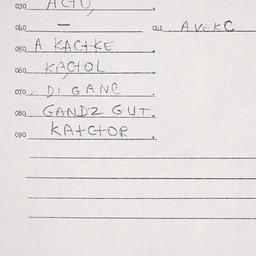 030 ACTU,
040 — 041 AVEKC
050 A KACTKE
060 KACTOL
070 DI GANC
080 GANDZ GUT
090 KATCTOR